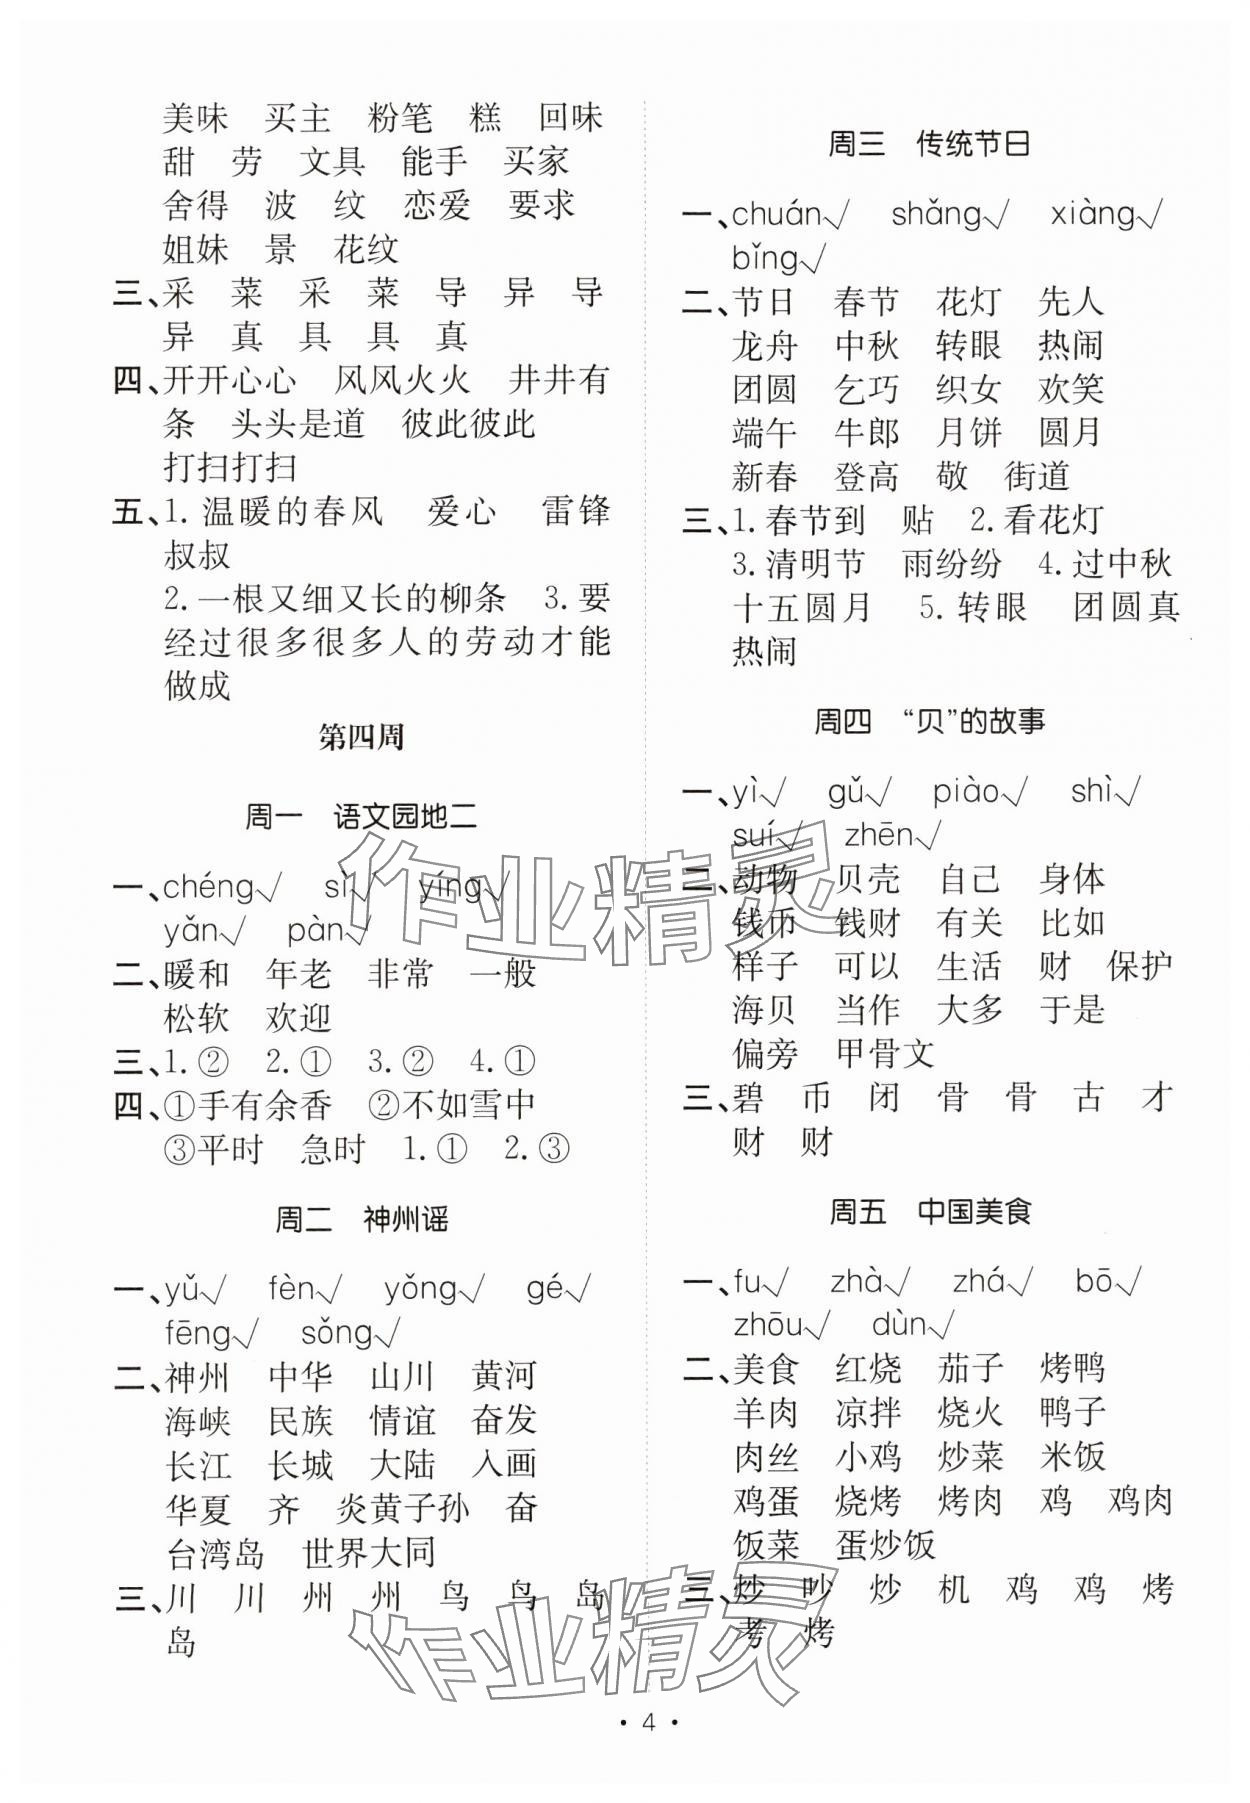 美味 买主 粉笔 糕 回味
甜 劳 文具 能手 买家
舍得 波 纹 恋爱 要求
姐妹 景 花纹
三、采 菜 采 菜 导 异 导
异 真 具 具 真
四、开开心心 风风火火 井井有
条 头头是道 彼此彼此
打扫打扫
五、1.温暖的春风 爱心 雷锋
叔叔
2.一根又细又长的柳条 3.要
经过很多很多人的劳动才能
做成
第四周
周一 语文园地二
一、chéng√ sì√ yíng√
yǎn√ pàn√
二、暖和 年老 非常 一般
松软 欢迎
三、1.② 2.① 3.② 4.①
四、①手有余香 ②不如雪中
③平时 急时 1.① 2.③
周二 神州谣
一、yǔ√ fèn√ yǒng√ gé√
fēng√ sǒng√
二、神州 中华 山川 黄河
海峡 民族 情谊 奋发
长江 长城 大陆 入画
华夏 齐 炎黄子孙 奋
台湾岛 世界大同
三、川 川 州 州 鸟 鸟 岛
岛
周三 传统节日
一、chuán√ shǎng√ xiàng√
bǐng√
二、节日 春节 花灯 先人
龙舟 中秋 转眼 热闹
团圆 乞巧 织女 欢笑
端午 牛郎 月饼 圆月
新春 登高 敬 街道
三、1.春节到 贴 2.看花灯
3.清明节 雨纷纷 4.过中秋
十五圆月 5.转眼 团圆真
热闹
周四 “贝”的故事
一、yì√ gǔ√ piào√ shì√
suí√ zhēn√
二、动物 贝壳 自己 身体
钱币 钱财 有关 比如
样子 可以 生活 财 保护
海贝 当作 大多 于是
偏旁 甲骨文
三、碧 币 闭 骨 骨 古 才
财 财
周五 中国美食
一、fu√ zhà√ zhá√ bō√
zhōu√ dùn√
二、美食 红烧 茄子 烤鸭
羊肉 凉拌 烧火 鸭子
肉丝 小鸡 炒菜 米饭
鸡蛋 烧烤 烤肉 鸡 鸡肉
饭菜 蛋炒饭
三、炒 吵 炒 机 鸡 鸡 烤
考 烤
作业精灵
作业精灵
• 4 •